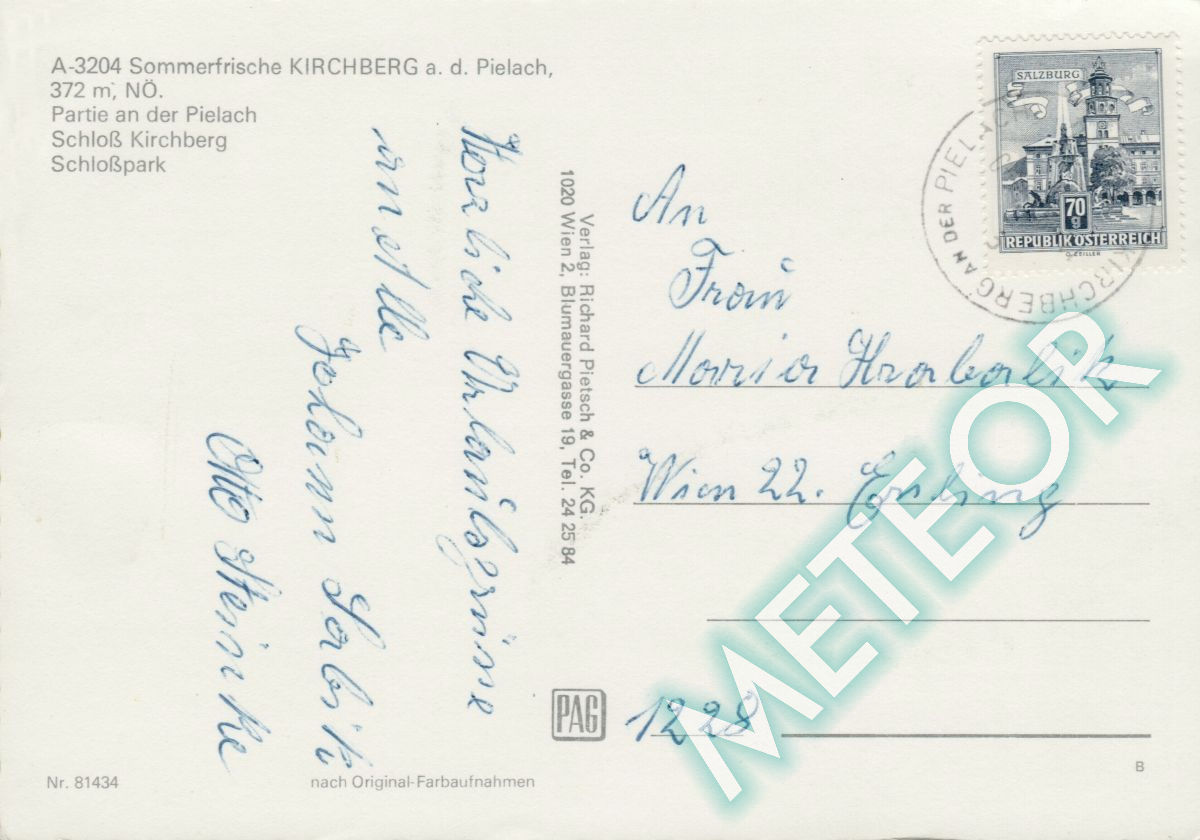 A-3204 Sommerfrische KIRCHBERG a. d. Pielach,
372 m, NÖ.
Partie an der Pielach
Schloß Kirchberg
Schloßpark
Herzliche Urlaubsgrüsse
an alle
Johann
Otto
Verlag: Richard Pietsch & Co. KG.
1020 Wien 2, Blumauergasse 19, Tel. 24 25 84
SALZBURG
70
g
REPUBLIK ÖSTERREICH
O. ZEILLER
KIRCHBERG AN DER PIELACH
An
Frau
Maria Hrabalik
Wien 22. Essling
1228
PAG
METEOR
Nr. 81434
nach Original-Farbaufnahmen
B